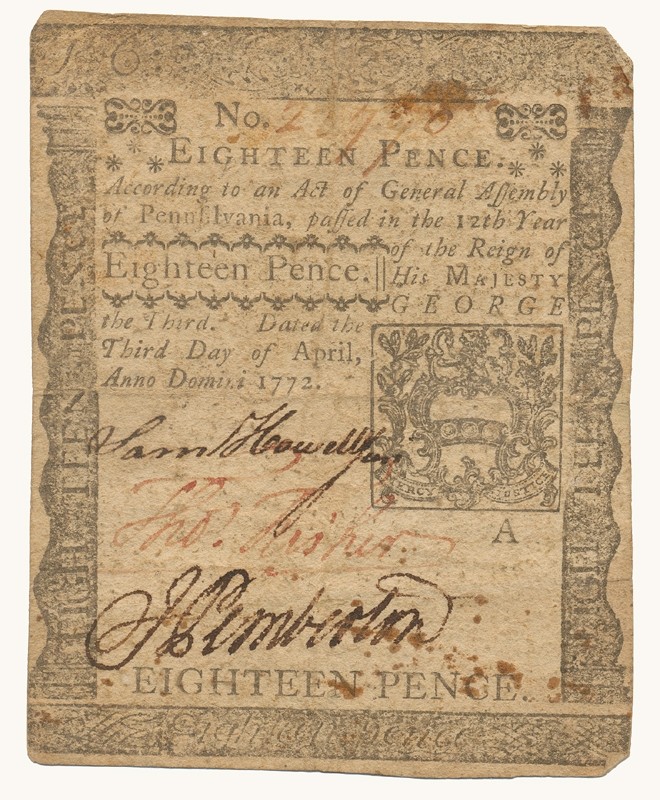 No.
EIGHTEEN PENCE.
According to an Act of General Aſſembly
of Pennſylvania, paſſed in the 12th Year
of the Reign of
Eighteen Pence.
His MAJESTY
GEORGE
the Third. Dated the
Third Day of April,
Anno Domini 1772.
Sam Howell Jun
MERCY JUSTICE
Tho. Fisher
A
J Pemberton
EIGHTEEN PENCE.
Eighteen Pence
EIGHTEEN PENCE
EIGHTEEN PENCE